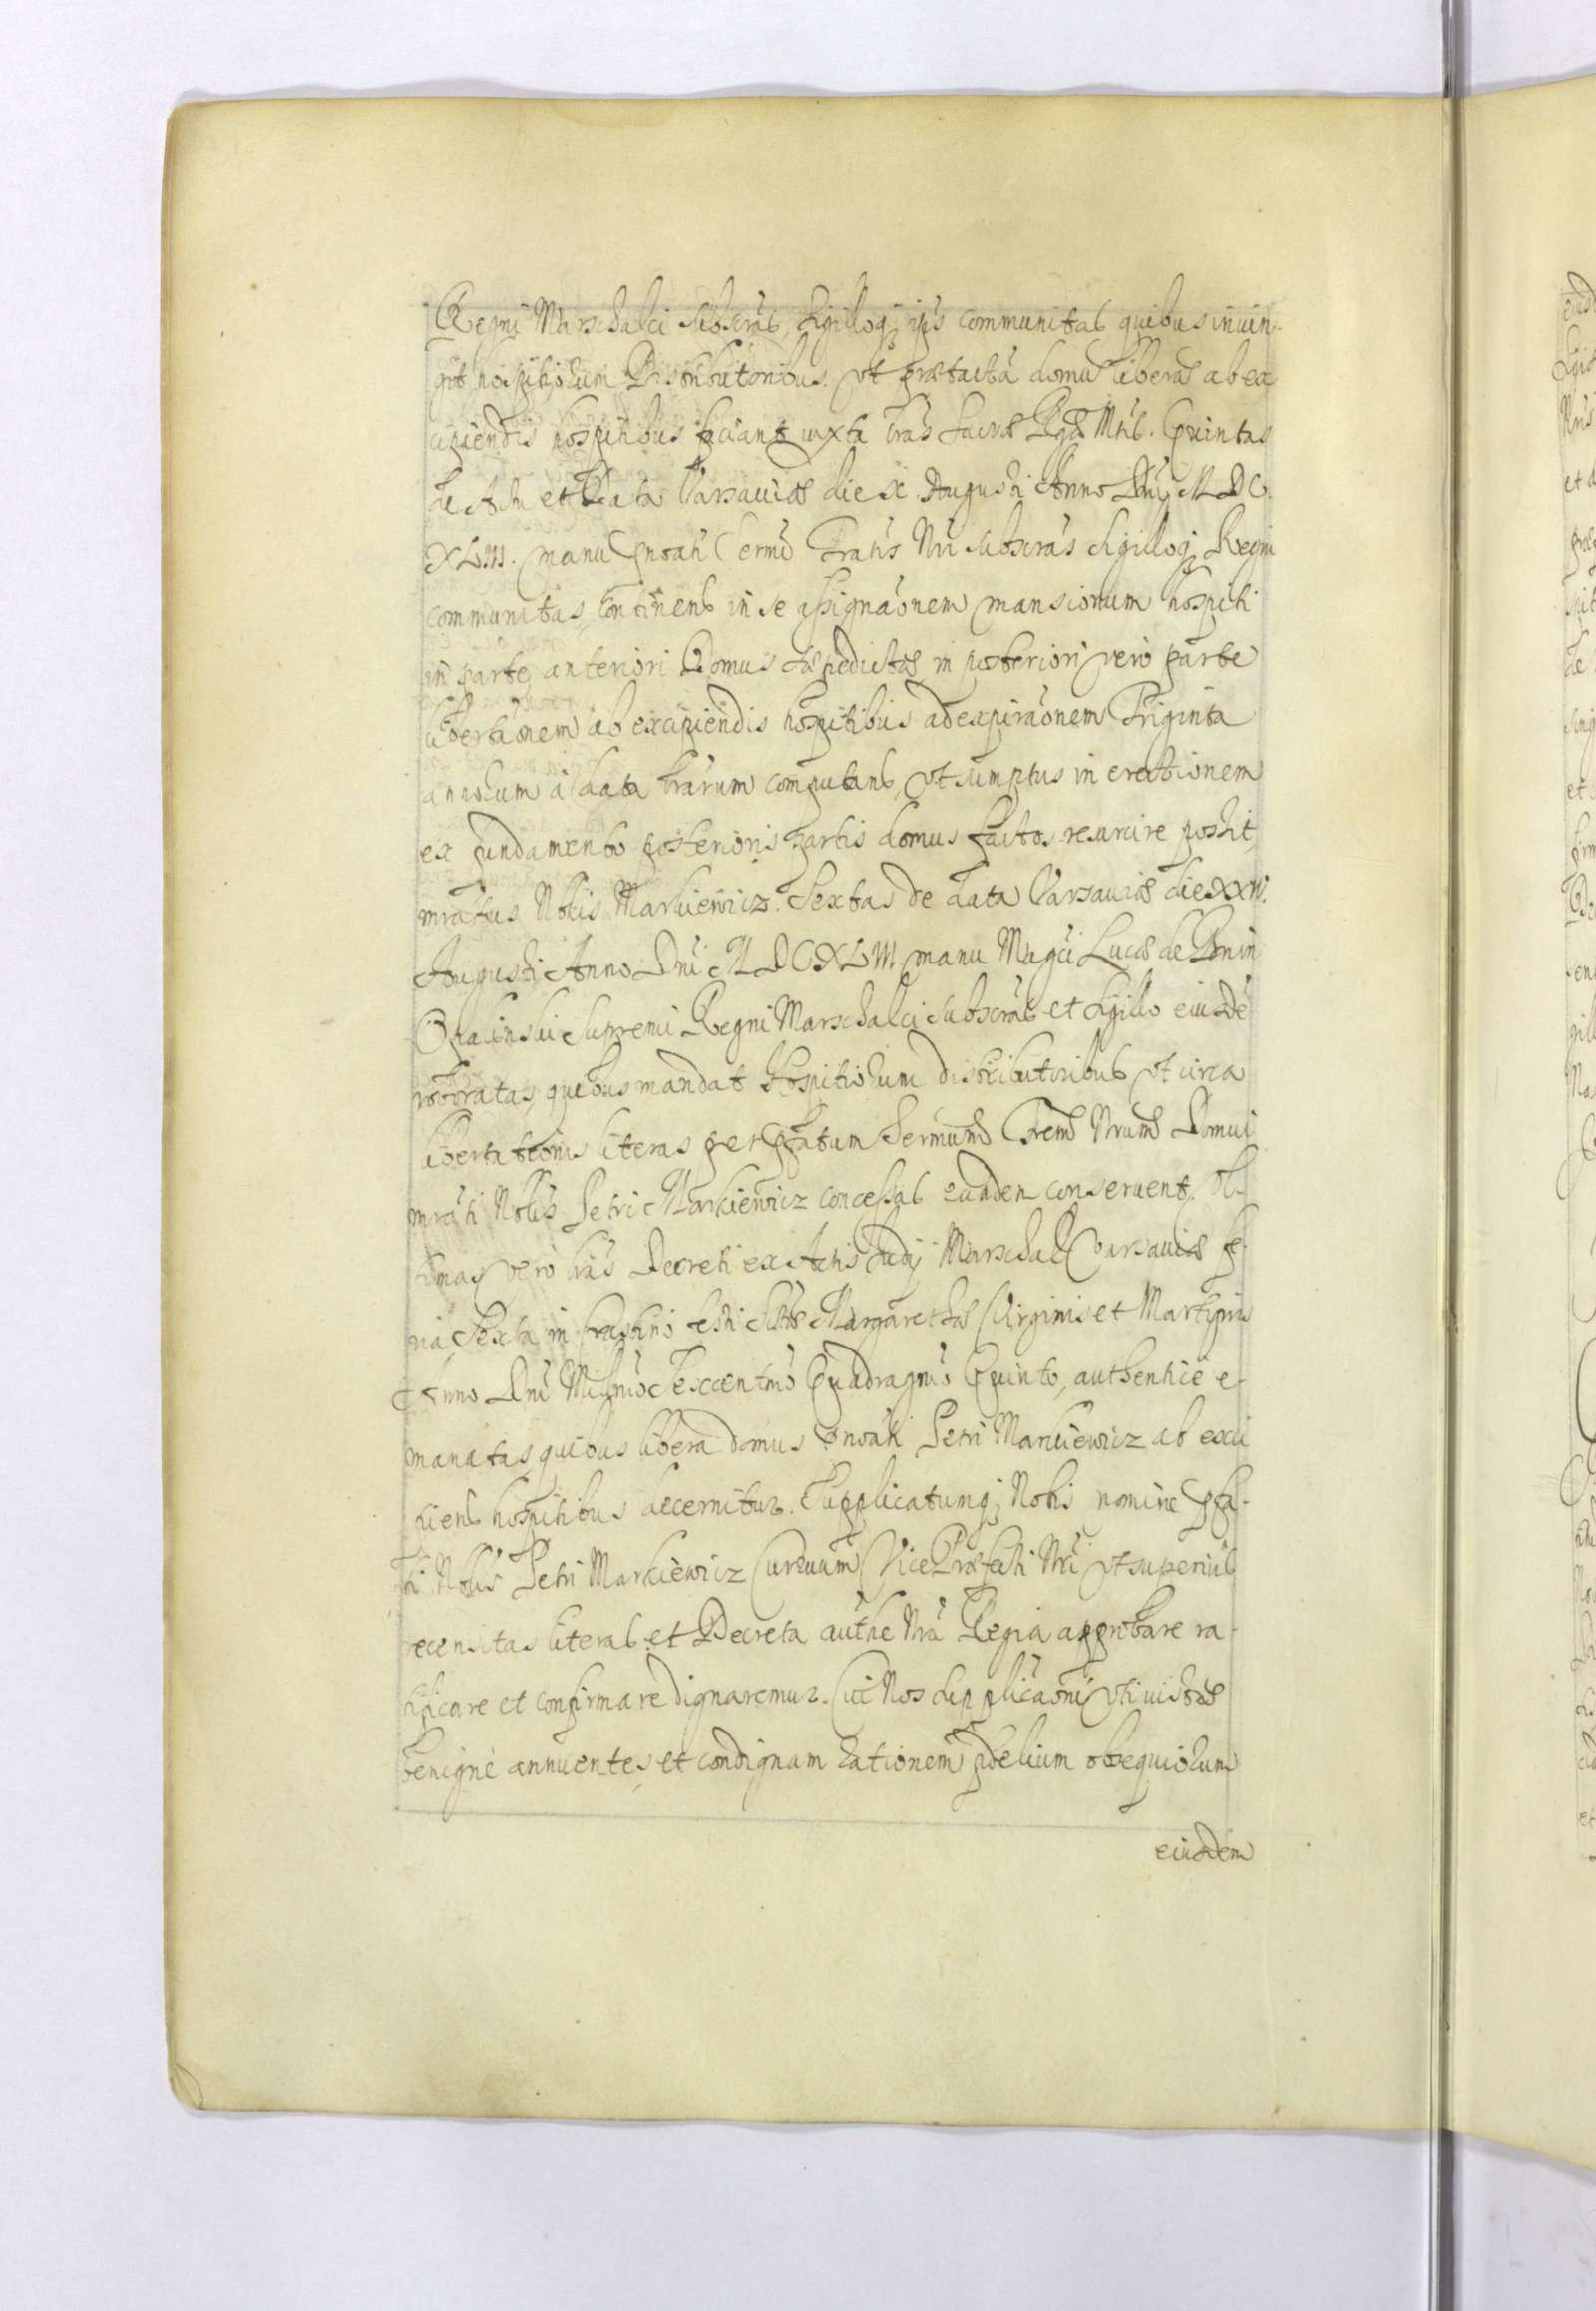 Regni Marschalci subscrãs, Sigilloq; ipsius communitas quibus iniun-
git hospitiorum Distributoribus vt prætactã domũ liberã ab ex
cipiendis hospitibus faciant iuxta lras Sacræ Rgæ Mtis. Quintas
de Actu et Data Varsaviæ die x Augusti Anno Dni M DC
manu pnoati Sermi Fratris Nri subscrãs Sigilloq; Regni
communitas, continens in se assignãonem mansionum hospiti
in parte anteriori Domus prædictæ, in posteriori vero parte
libertãonem ab excipiendis hospitibus ad expirãonem Triginta
annorum à data lrãrum computans, vt sumptus in erectionem
ex fundamento posterioris partis domus factos resarcire possit
mratus Nobis Markiewicz. Sextas de data Varsaviæ die
Augusti Anno Dni manu Magci Lucæ de Bnin
Opalinski Supremi Regni Marschalci subscrãs et Sigillo eiusdẽ
roboratas, quibus mandat Hospitiorum distributoribus vt circa
libertationis literas per pfatum Sermum Frem Nrum Domui
mrati Noblis Petri Markiewicz concessas eundem conservent. Vl-
timas vero lras Decreti ex Actis Judij Marschal: Varsaviæ fe-
ria Sexta in crastino festi Sctæ Margarethæ Virginis et Martyris
Anno Dni Millmo Sexcentmo Quadragmo Quinto, authenticè e-
manatas, quibus libera domus pnoati Petri Markiewicz ab exci
piens hospitibus decernitur. Supplicatumq; Nobis nomine pfa-
ti Noblis Petri Markiewicz Curruum Vice Præfecti Nri vt superius
recensitas literas et Decreta authe Nra Regia approbare ra-
tificare et confirmare dignaremur. Cui Nos supplicãoni vti iustæ
benignè annuentes, et condignam rationem fidelium obsequiorum
eiusdem